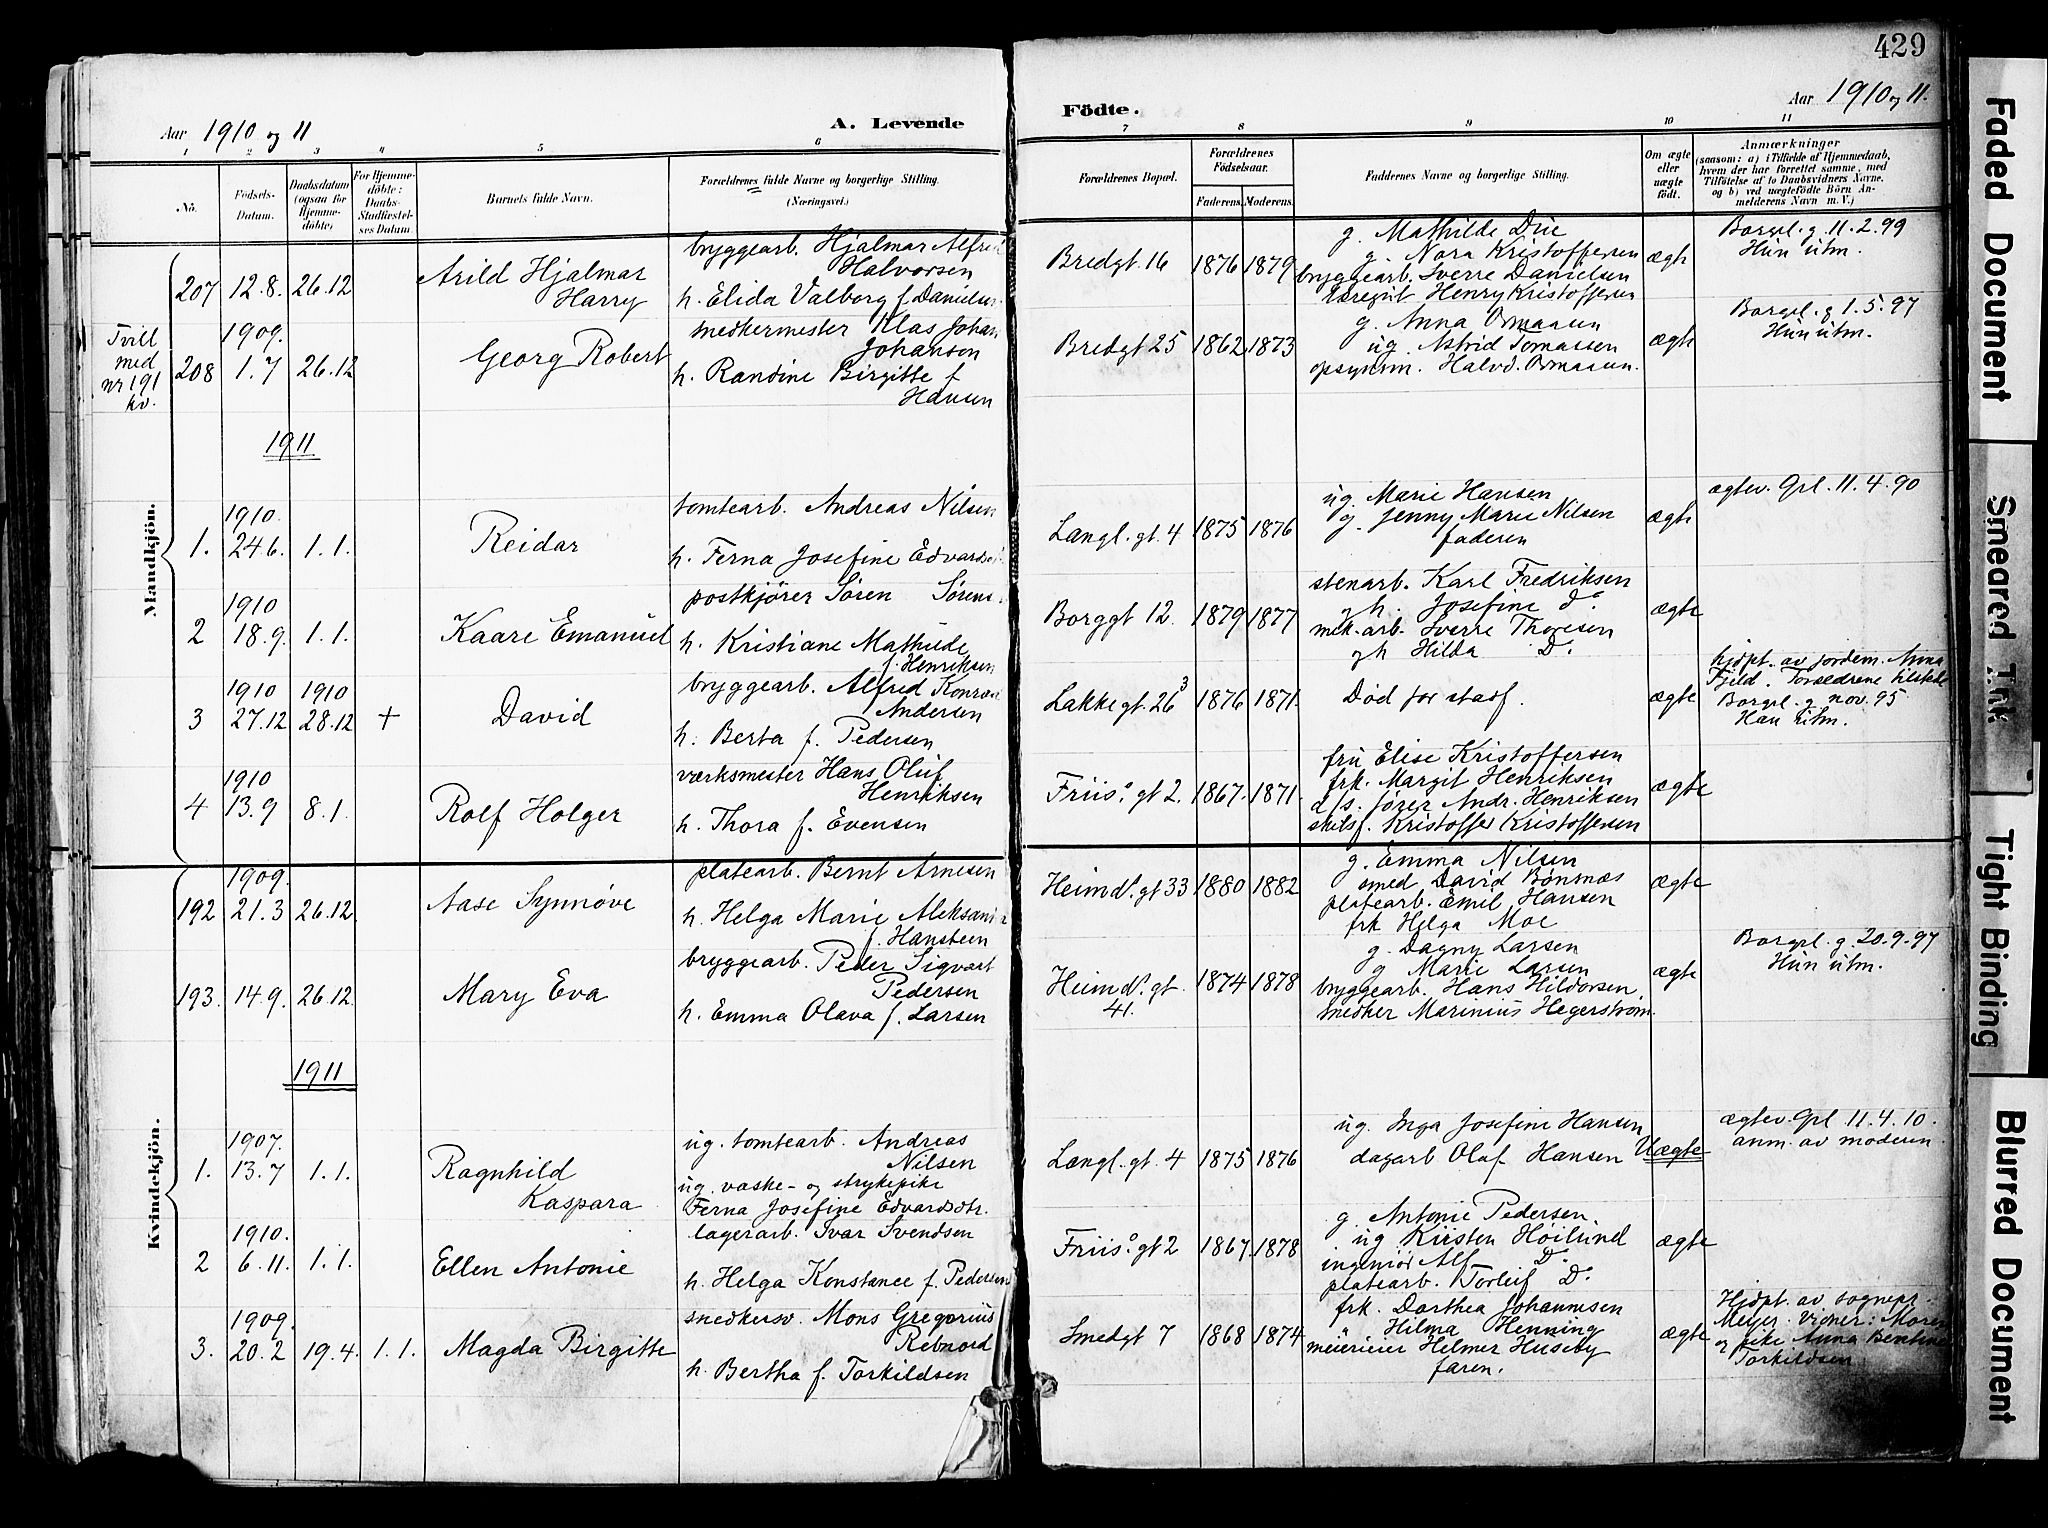 429
Aar 1910 og 11
A. Levende
Födte.
Aar 1910 og 11.
1 2 3 4 5 6 7 8 9 10 11
No.
Fødsels-Datum.
Daabsdatum (ogsaa for Hjemme-döbte)
For Hjemme-döbte: Daabs-Stadfæstel-ses Datum.
Barnets fulde Navn.
Forældrenes fulde Navne og borgerlige Stilling.
(Næringsvei.)
Forældrenes Bopæl.
Forældrenes Födselsaar.
Faderens. Moderens.
Faddernes Navne og borgerlige Stilling.
Om ægte eller uægte födt.
Anmærkninger
(saasom: a) i Tilfælde af Hjemmedaab,
hvem der har forrettet samme, med
Tilföielse af to Daabsvidners Navne,
og b) ved uægtefödte Börn An-
melderens Navn m. V.)
Mandkjön.
207 12.8. 26.12
Arild Hjalmar
Harry
bryggearb. Hjalmar Alfred
Halvorsen
h. Elida Valborg f. Danielsen
Bredgt. 16 1876 1879
g. Mathilde Due
g. Nora Kristoffersen
bryggearb. Sverre Danielsen
Henry Kristoffersen
ægte
Borgel. g. 11.2.99
Hun utm.
Tvill
med
nr 191
kv.
208 1909. 1.7 26.12
Georg Robert
snedkermester Klas Johan
Johanson
h. Randine Birgitte f
Hansen
Bredgt 25 1862 1873
g. Anna Ormaasen
ug. Astrid Tomassen
opsynsm. Halvd. Ormaasen.
ægte
Borgel. g 1.5.97
Hun utm.
1911
1. 1910. 24.6. 1.1.
Reidar
tomtearb. Andreas Nilsen
h. Ferna Josefine Edvardsd
Langl. gt. 4 1875 1876
ug. Marie Hansen
g. Jenny Marie Nilsen
faderen
ægte
ægtev. Grl. 11.4.90
2 1910 18.9. 1.1.
Kaare Emanuel
postkjører Søren Sørens.
h. Kristiane Mathilde
f. Henriksen
Borggt 12. 1879 1877
stenarb. Karl Fredriksen
g h. Josefine do.
mek.arb. Sverre Thoresen
g h Hilda Do.
ægte
3 1910 27.12 1910 28.12 +
David
bryggearb. Alfred Konrad
Andersen
h. Berta f. Pedersen
Lakkegt. 26 3 1876 1871.
Død før stadf.
ægte
hjdpt. av jordem. Anna
Fjeld. Forældrene tilstede
Borgel. g nov. 95
Han utm.
4 1910 13.9 8.1.
Rolf Holger
værksmester Hans Oluf
Henriksen
h. Thora f. Evensen
Friis's gt 2. 1867. 1871.
fru Elise Kristoffersen
frk. Margit Henriksen
d/s. fører Andr. Henriksen
skibsf. Kristoffer Kristoffersen
ægte
Kvindekjön.
192 1909. 21.3 26.12
Aase Synnøve
platearb. Bernt Arnesen
h. Helga Marie Aleksandra
f. Hansteen
Heimd's. gt 33 1880 1882
g. Emma Nilsen
smed David Bønsnæs
platearb. Emil Hansen
frk Helga Moe
ægte
193. 14.9. 26.12.
Mary Eva
bryggearb. Peder Sigvart
Pedersen
h. Emma Olava f. Larsen
Heimd's. gt.
41. 1874 1878
g. Dagny Larsen
g Marie Larsen
bryggearb. Hans Hildorsen
snedker Marinius Hegerstrøm.
ægte
Borgel. g. 20.9.97
Hun utm.
1911
1. 1907. 13.7 1.1.
Ragnhild
Kaspara
ug. tomtearb. Andreas
Nilsen
ug. vaske- og strykepike
Ferna Josefine Edvardsdtr.
Langl. gt. 4 1875 1876
ug. Inga Josefine Hansen
dagarb Olaf Hansen
Uægte
ægtev. Grl 11.4.10.
anm. av moderen.
2 1910. 6.11. 1.1.
Ellen Antonie
lagerarb. Ivar Svendsen
h. Helga Konstance f. Pedersen
Friis's gt 2 1867. 1878
g. Antonie Pedersen.
ug Kirsten Høilund
ingeniør Alf Do
platearb. Torleif Do.
ægte
3. 1909. 20.2 19.4. 1.1.
Magda Birgitte
snedkersv. Mons Gregorius
Rebnord
h. Bertha f. Torkildsen
Smedgt 7 1868 1874
frk. Dorthea Johannesen
" Hilma Henning
meierieier Helmer Huseby
faren.
ægte
Hjdpt. av sognepr.
Meyer. Vidner: Moren
og pike Anna Bentine
Torkildsen
Faded Document
Smeared Ink
Tight Binding
Blurred Document